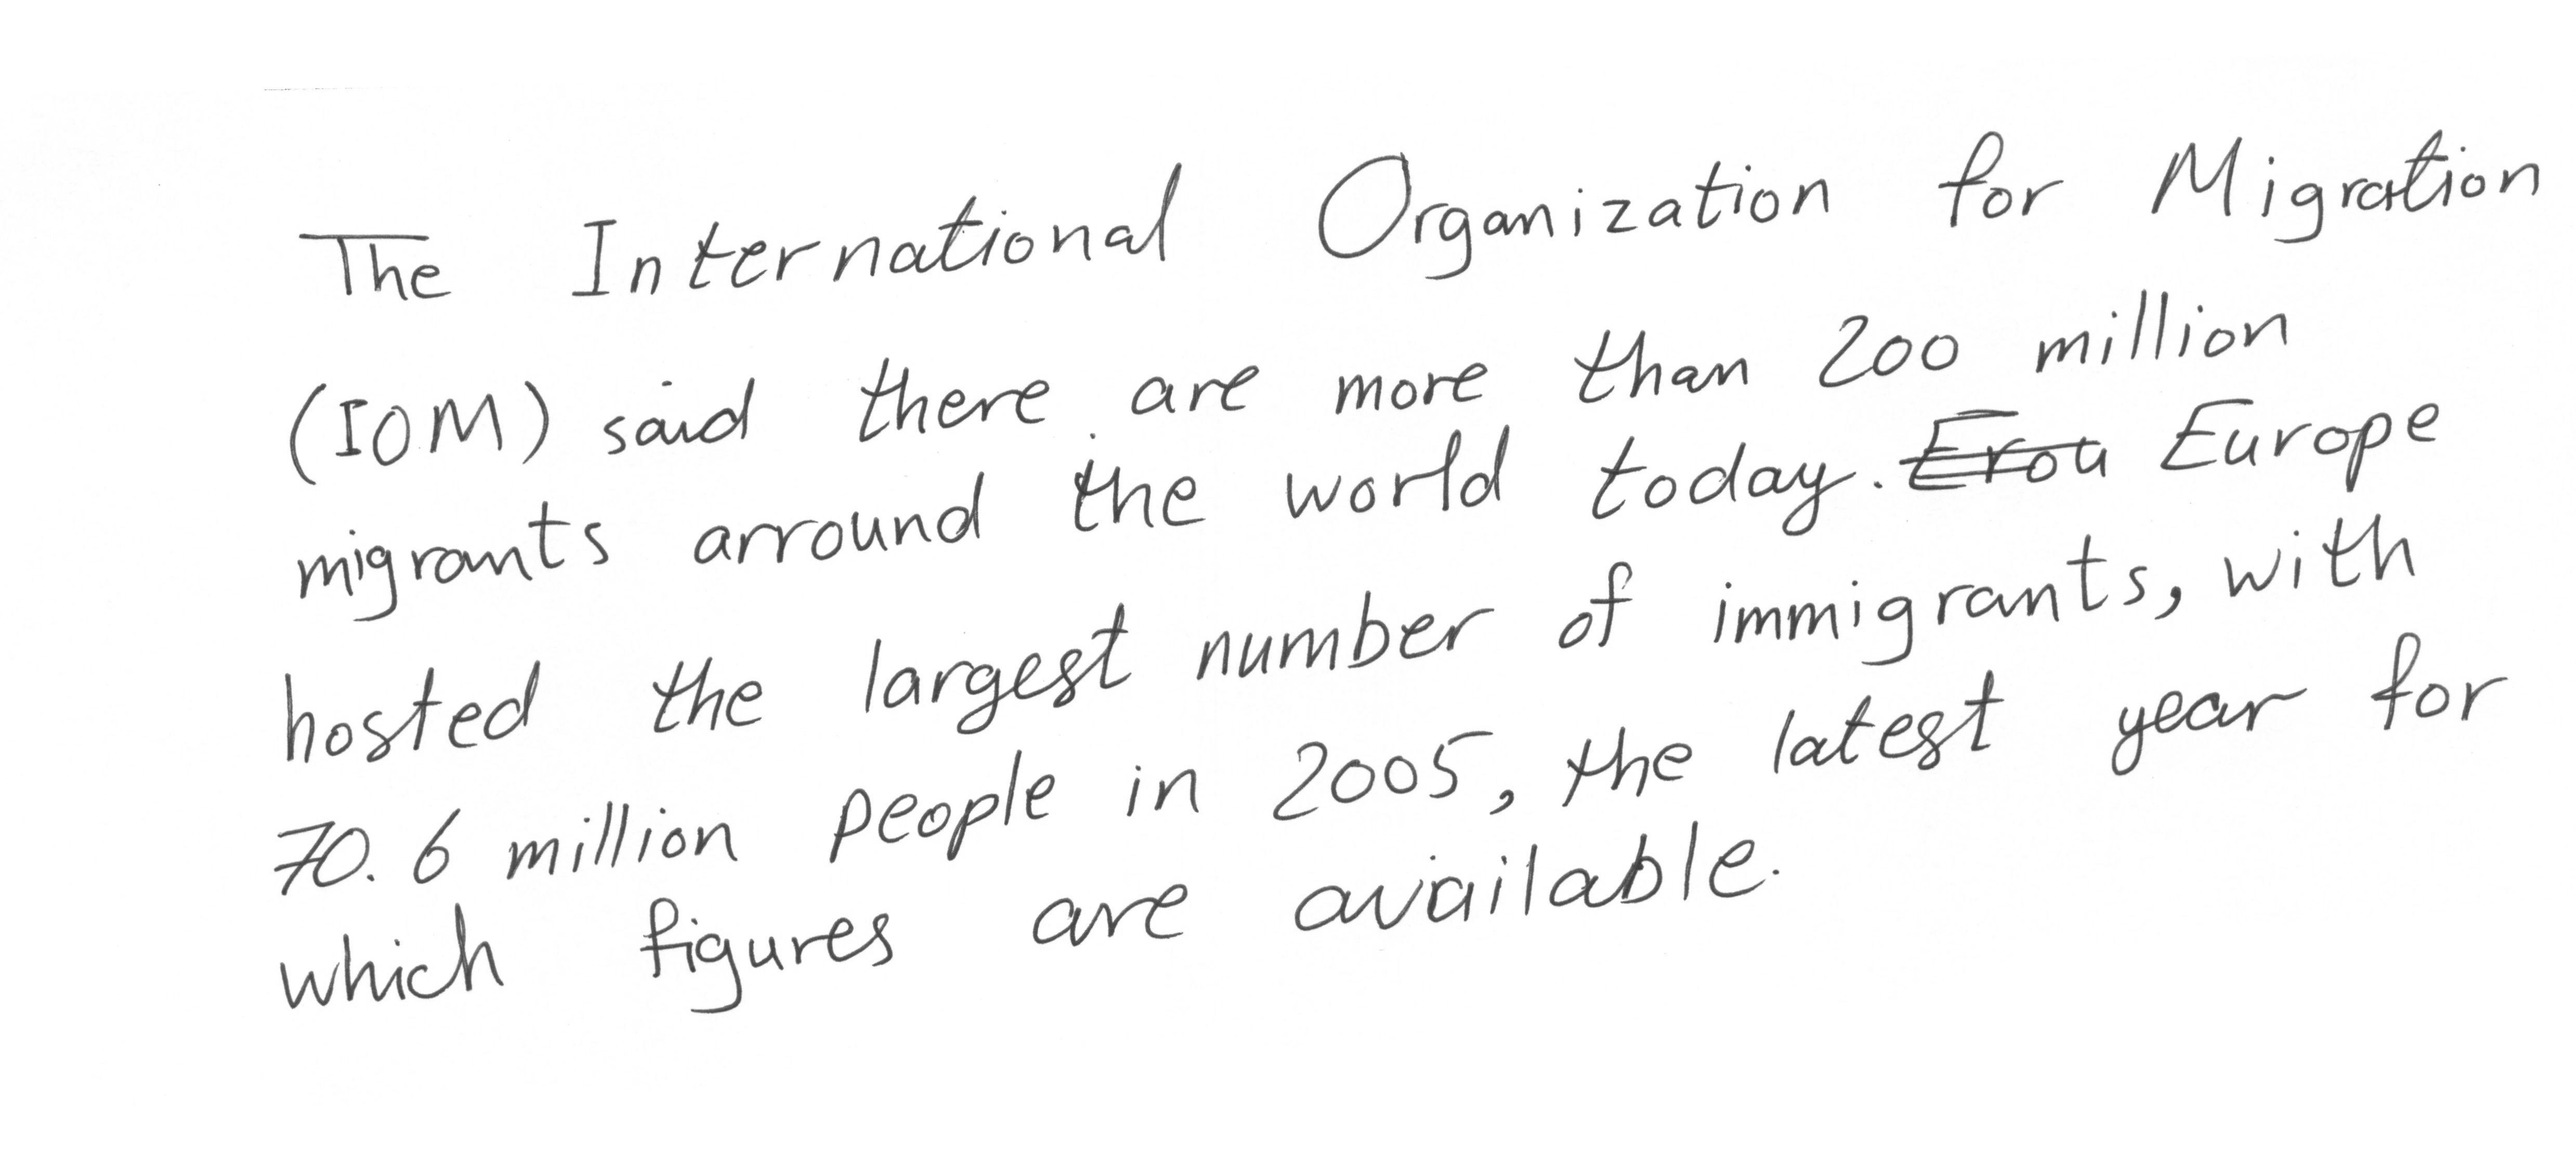 The International Organization for Migration
(IOM) said there are more than 200 million
migrants arround the world today. ~~Erou~~ Europe
hosted the largest number of immigrants, with
70.6 million people in 2005, the latest year for
which figures are available.